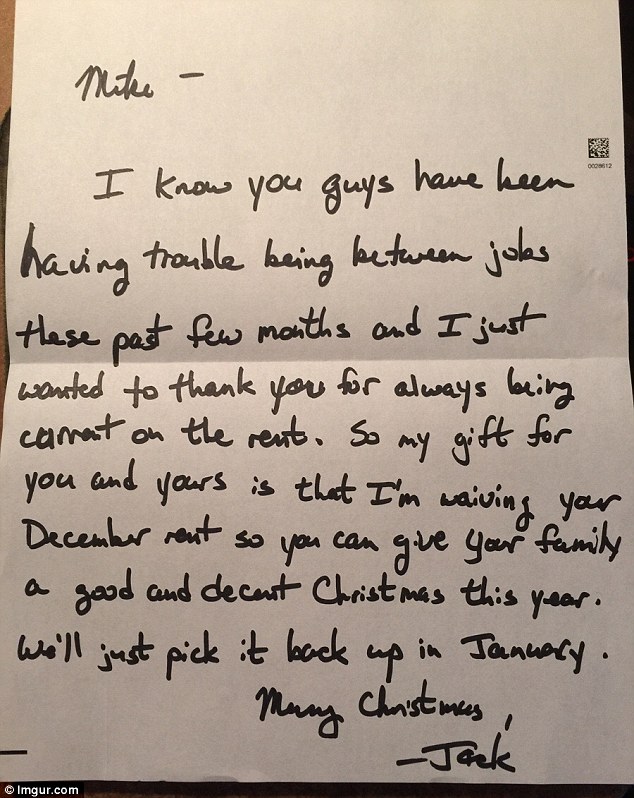 Mike -
0028612
I know you guys have been
having trouble being between jobs
these past few months and I just
wanted to thank you for always being
current on the rent. So my gift for
you and yours is that I'm waiving your
December rent so you can give your family
a good and decent Christmas this year.
We'll just pick it back up in January.
Merry Christmas,
-Jack
© Imgur.com